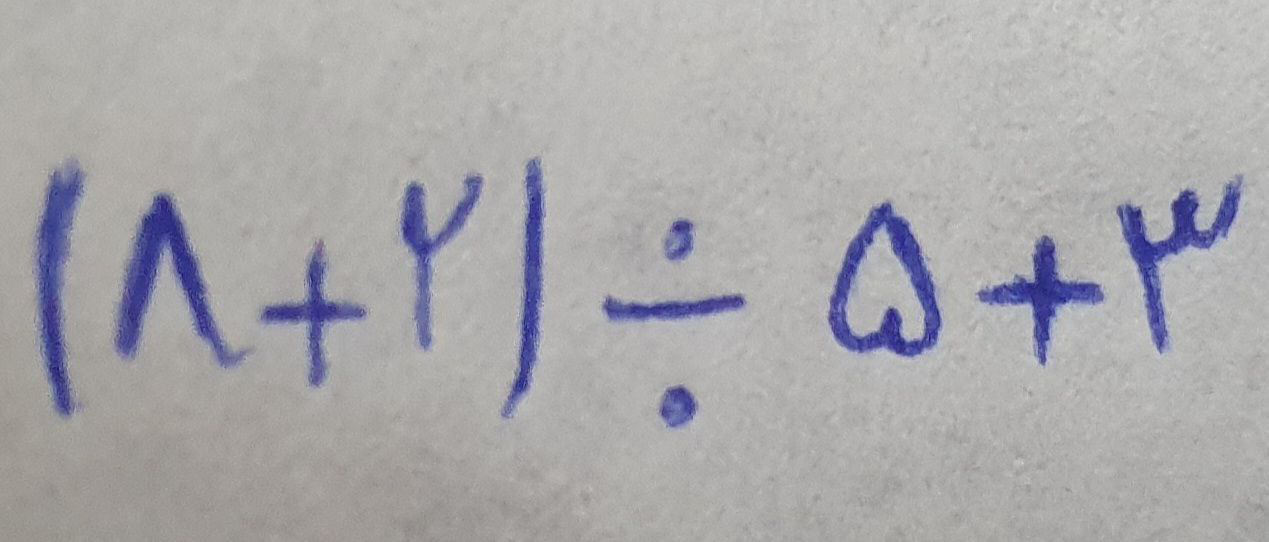 (۸+۲) ÷ ۵+۳